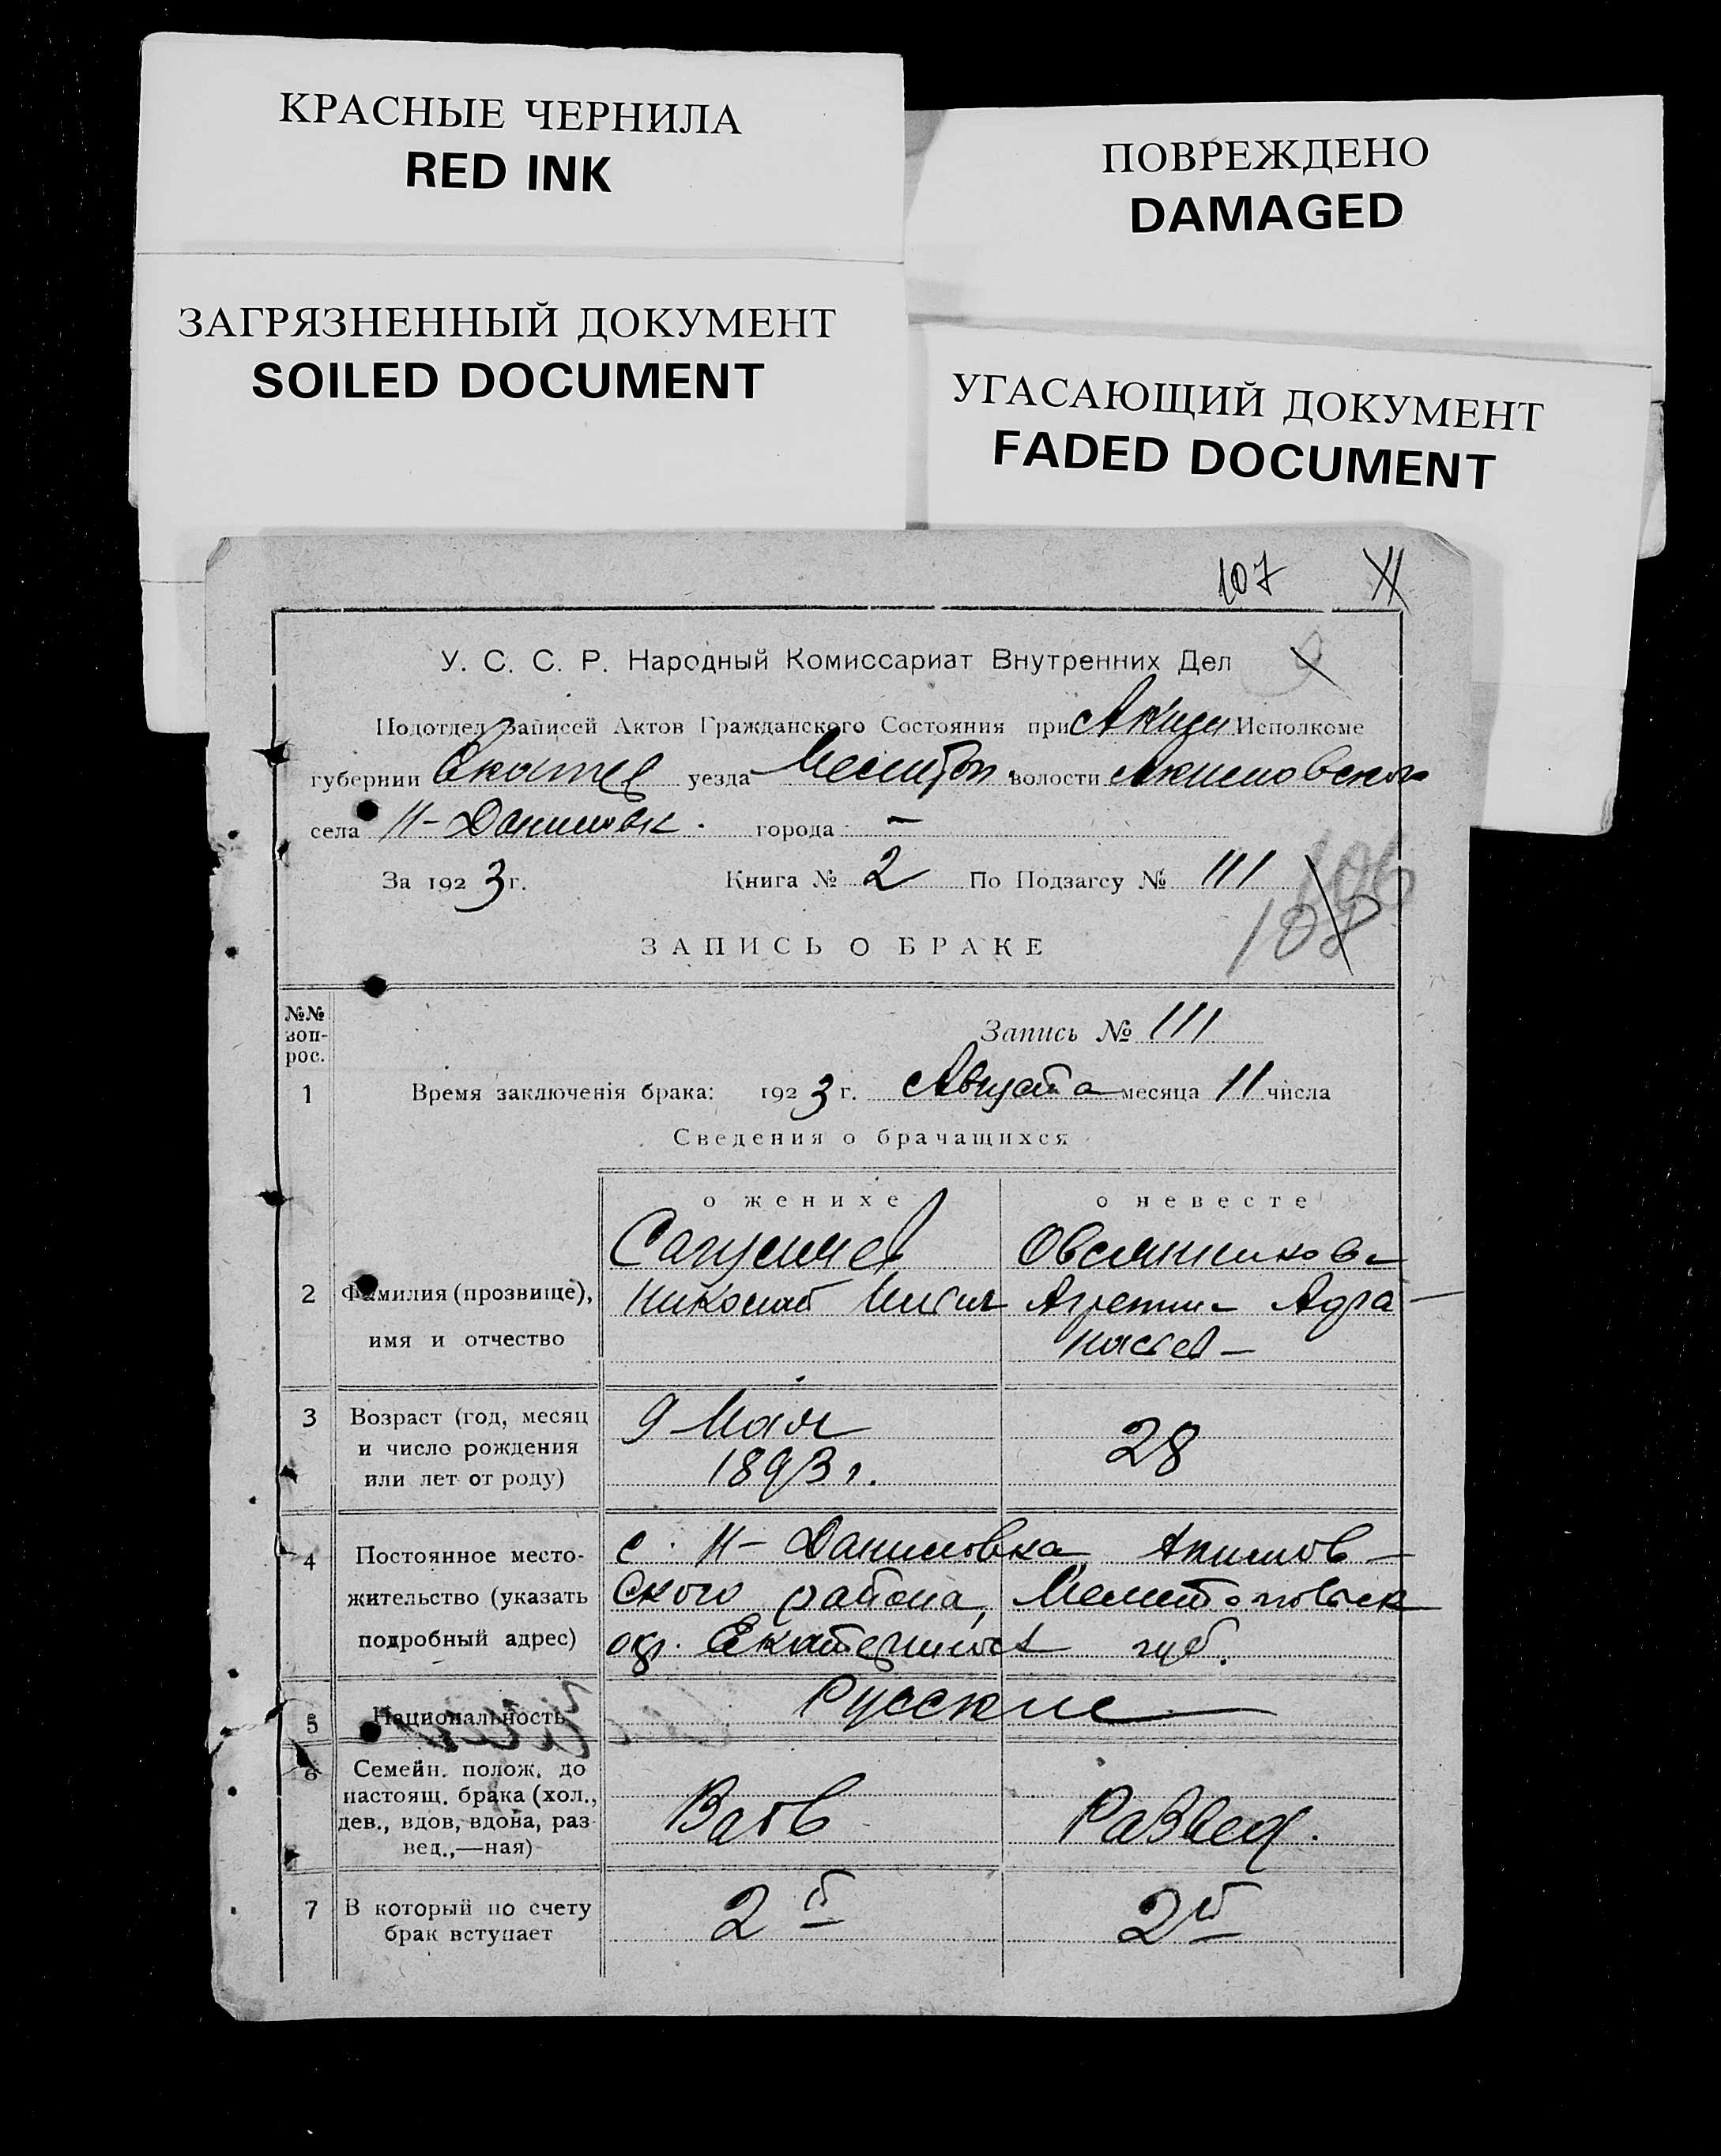 КРАСНЫЕ ЧЕРНИЛА
RED INK
ПОВРЕЖДЕНО
DAMAGED
ЗАГРЯЗНЕННЫЙ ДОКУМЕНТ
SOILED DOCUMENT
УГАСАЮЩИЙ ДОКУМЕНТ
FADED DOCUMENT
107
У. С. С. Р. Народный Комиссариат Внутренних Дел
Подотдел Записей Актов Гражданского Состояния при Исполкоме
губернии уезда волости Акимовской
села Н-Даниловк. города —
За 1923 г. Книга № 2 По Подзагсу № 111
106
108
ЗАПИСЬ О БРАКЕ
№№ воп-рос.
Запись № 111
1 Время заключенія брака: 1923 г. Августа месяца 11 числа
Сведения о брачащихся
о женихе о невесте
Овсянникова
2 Фамилия (прозвище), Николай Агрепин
имя и отчество
3 Возраст (год, месяц 9 Мая 28
и число рождения 1893 г.
или лет от роду)
4 Постоянное место- с. Н-Даниловка Акимов-
жительство (указать ского района, Мелитопольск
подробный адрес) окр. Екатеринос губ.
5 Национальность Русские
6 Семейн. полож. до
настоящ. брака (хол.,
дев., вдов, вдова, раз Развед.
вед.,—ная)
7 В который по счету 2й 2й
брак вступает